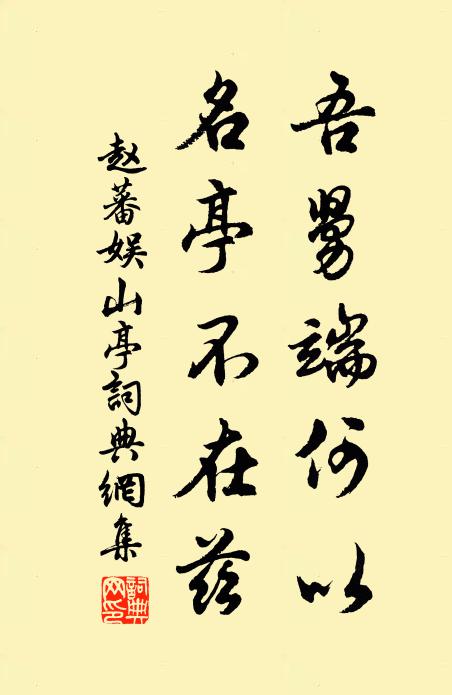 吾舅端何以
名亭不在兹
赵蕃娱山亭詞典網集
詞典网印